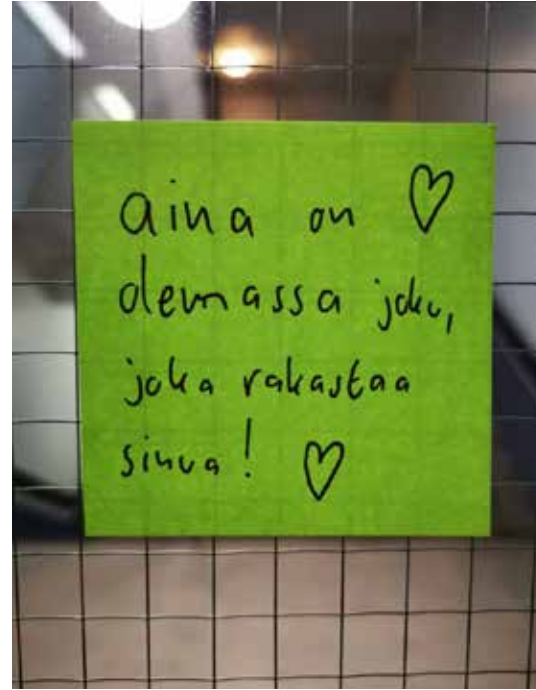 aina on ♡
olemassa joku,
joka rakastaa
sinua! ♡